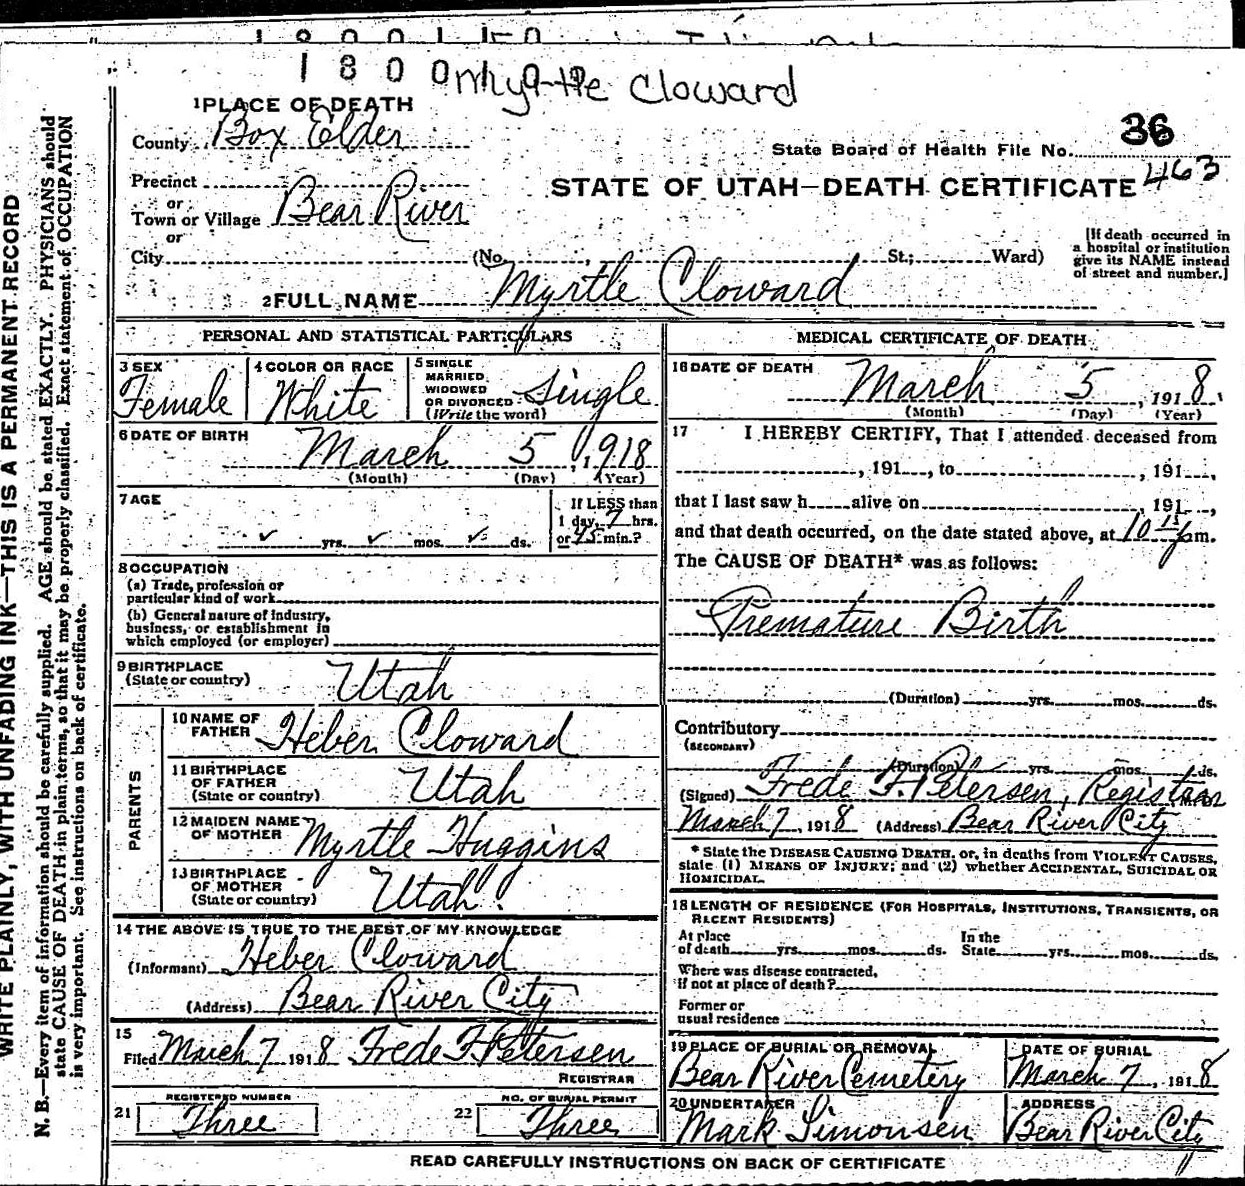 1800
Myrtle Cloward
1 PLACE OF DEATH
County Box Elder
State Board of Health File No. 36
463
Precinct
or
Town or Village Bear River
STATE OF UTAH—DEATH CERTIFICATE
or
City (No. , St.; Ward)
[If death occurred in
a hospital or institution
give its NAME instead
of street and number.]
2 FULL NAME Myrtle Cloward
WRITE PLAINLY, WITH UNFADING INK—THIS IS A PERMANENT RECORD
N. B.—Every item of information should be carefully supplied. AGE should be stated EXACTLY. PHYSICIANS should
state CAUSE OF DEATH in plain terms, so that it may be properly classified. Exact statement of OCCUPATION
is very important. See instructions on back of certificate.
PERSONAL AND STATISTICAL PARTICULARS
3 SEX
Female
4 COLOR OR RACE
White
5 SINGLE
MARRIED
WIDOWED
OR DIVORCED
(Write the word)
Single
6 DATE OF BIRTH
March 5, 1918
(Month) (Day) (Year)
7 AGE
✓ yrs. ✓ mos. ✓ ds.
If LESS than
1 day, 7 hrs.
or 45 min.?
8 OCCUPATION
(a) Trade, profession or
particular kind of work
(b) General nature of industry,
business, or establishment in
which employed (or employer)
9 BIRTHPLACE
(State or country)
Utah
PARENTS
10 NAME OF
FATHER
Heber Cloward
11 BIRTHPLACE
OF FATHER
(State or country)
Utah
12 MAIDEN NAME
OF MOTHER
Myrtle Huggins
13 BIRTHPLACE
OF MOTHER
(State or country)
Utah.
14 THE ABOVE IS TRUE TO THE BEST OF MY KNOWLEDGE
(Informant) Heber Cloward
(Address) Bear River City
15
Filed March 7 1918 Frede F. Petersen
REGISTRAR
21
REGISTERED NUMBER
Three
22
NO. OF BURIAL PERMIT
Three
MEDICAL CERTIFICATE OF DEATH
16 DATE OF DEATH
March 5, 1918
(Month) (Day) (Year)
17 I HEREBY CERTIFY, That I attended deceased from
, 191 , to , 191 ,
that I last saw h alive on , 191 ,
and that death occurred, on the date stated above, at 10 15 pm.
The CAUSE OF DEATH* was as follows:
Premature Birth
(Duration) yrs. mos. ds.
Contributory
(SECONDARY)
(Duration) yrs. mos. ds.
(Signed) Frede F. Petersen, Registrar M. D.
March 7, 1918 (Address) Bear River City
* State the DISEASE CAUSING DEATH, or, in deaths from VIOLENT CAUSES,
state (1) MEANS OF INJURY; and (2) whether ACCIDENTAL, SUICIDAL OR
HOMICIDAL.
18 LENGTH OF RESIDENCE (FOR HOSPITALS, INSTITUTIONS, TRANSIENTS, OR
RECENT RESIDENTS)
At place
of death yrs. mos. ds.
In the
State yrs. mos. ds.
Where was disease contracted,
if not at place of death?
Former or
usual residence
19 PLACE OF BURIAL OR REMOVAL
Bear River Cemetery
DATE OF BURIAL
March 7, 1918
20 UNDERTAKER
Mark Simonsen
ADDRESS
Bear River City
READ CAREFULLY INSTRUCTIONS ON BACK OF CERTIFICATE